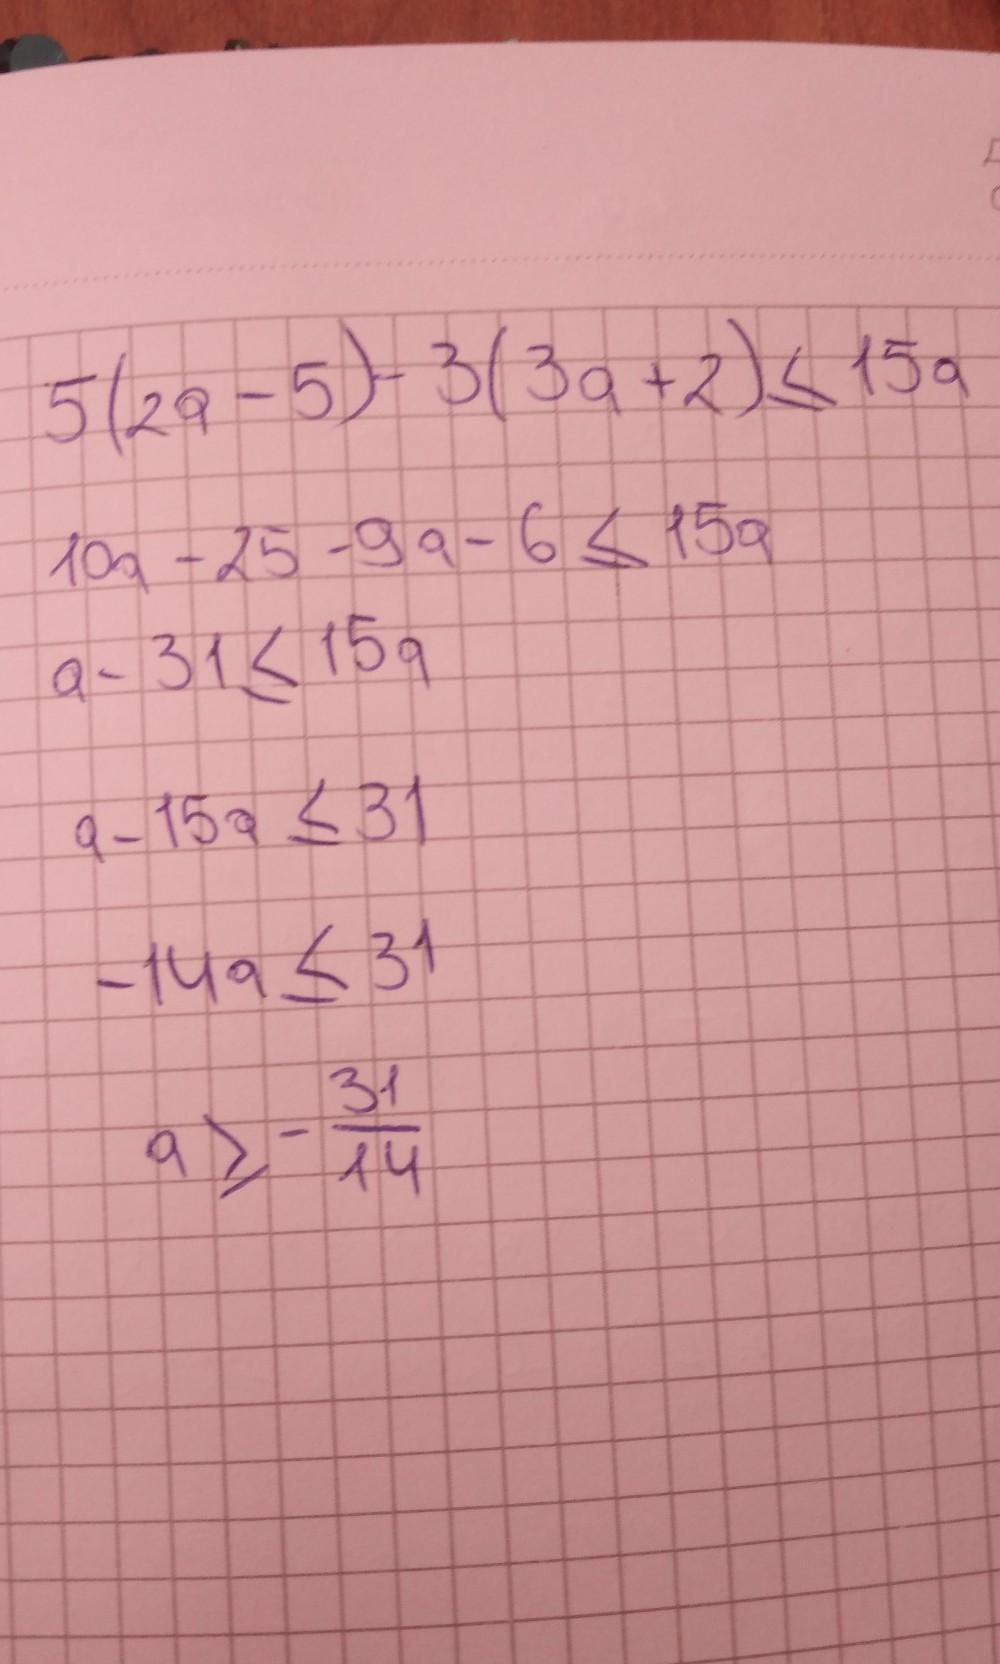 5(2a - 5) - 3(3a + 2) ≤ 15a
10a - 25 - 9a - 6 ≤ 15a
a - 31 ≤ 15a
a - 15a ≤ 31
-14a ≤ 31
a ≥ - 31/14